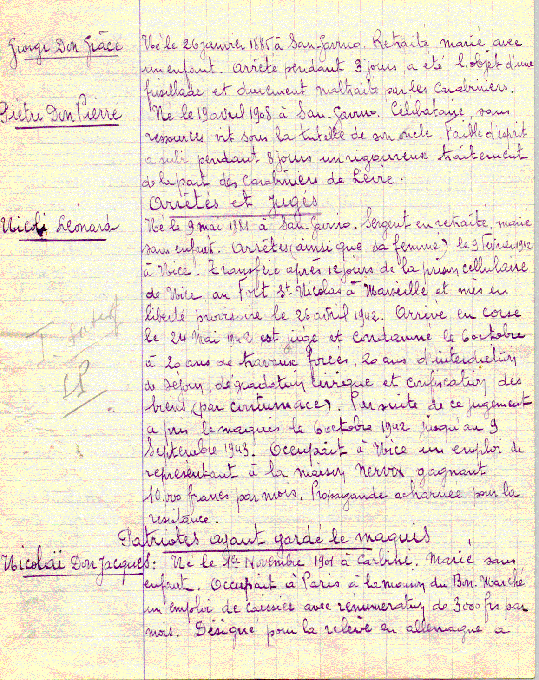 Giorgi Don Grâce Né le 26 janvier 1885 à San-Gavino. Retraité, marié avec
un enfant. Arrêté pendant 3 jours, a été l'objet d'une
fusillade et durement maltraité par les Carabiniers.
Pietri Don Pierre Né le 19 avril 1908 à San Gavino. Célibataire, sans
ressources vit sous la tutelle de son oncle. Faible d'esprit
a subi pendant 8 jours un rigoureux traitement
de la part des Carabiniers de Levie.
Arrêtés et jugés
Nicoli Léonard Né le 9 mai 1881 à San Gavino. Sergent en retraite, marié
sans enfant. Arrêtés (ainsi que sa femme) le 9 1942
à Nice. Transférer après 12 jours de la prison cellulaire
de Nice au Fort St Nicolas à Marseille et mis en
liberté provisoire le 26 avril 1942. Arrive en corse
le 24 Mai 1942 est jugé et condamné le 6 octobre
à 20 ans de travaux forcés, 20 ans d'interdiction
de séjour, dégradation civique et confiscation des
biens (par contumace). Par suite de ce jugement
a pris le maquis le 6 octobre 1942 jusqu'au 9
Septembre 1943. Occupait à Nice un emploi de
représentant à la maison gagnant
10.000 francs par mois. Propagande acharnée pour la
résistance.
Patriotes ayant gardé le maquis
Nicolaï Don Jacques: Né le 1er Novembre 1901 à Carbini. Marié sans
enfant. Occupait à Paris à la maison du Bon Marché
un emploi de caissier avec rénumération de 3000 frs par
mois. Désigné pour la relève en allemagne a